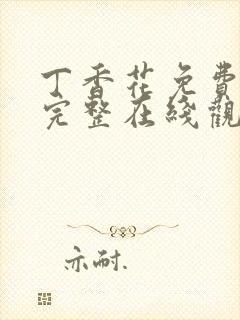 丁香花免費
完整在綫觀
亦耐.